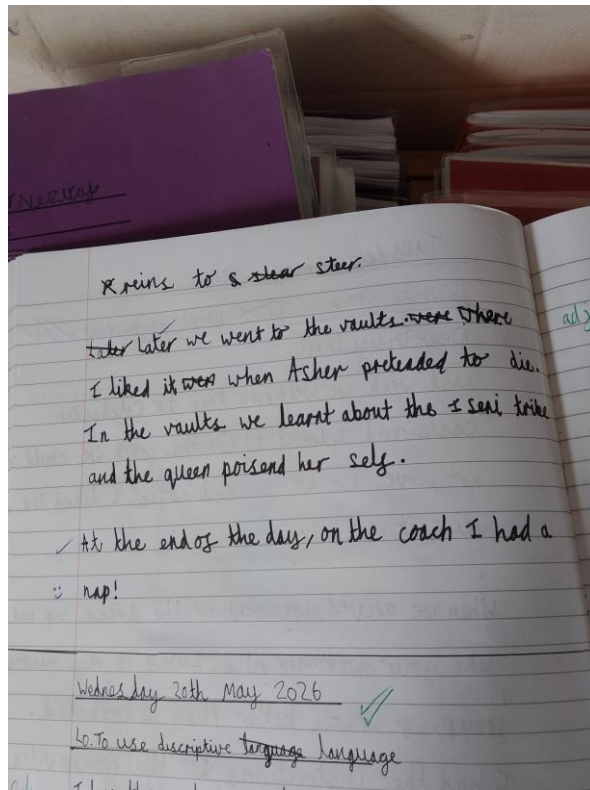 reins to steer.
Later we went to the vaults. where
I liked it when Asher pretended to die.
In the vaults we learnt about the I seni tribe
and the queen poisend her self.
At the end of the day, on the coach I had a
nap!
Wednesday 20th May 2026
Lo. To use descriptive language
adj